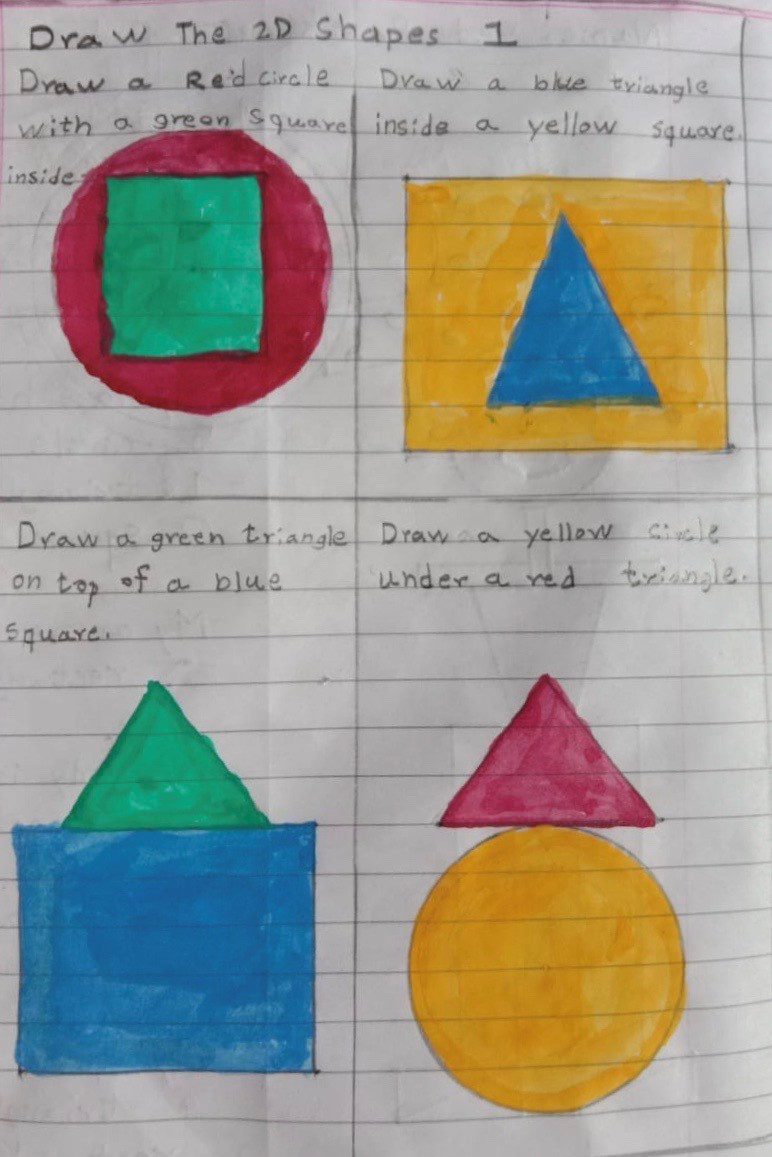 Draw The 2D Shapes 1
Draw a Red circle
with a green Square
inside
Draw a blue triangle
inside a yellow square.
Draw a green triangle
on top of a blue
Square.
Draw a yellow circle
under a red triangle.